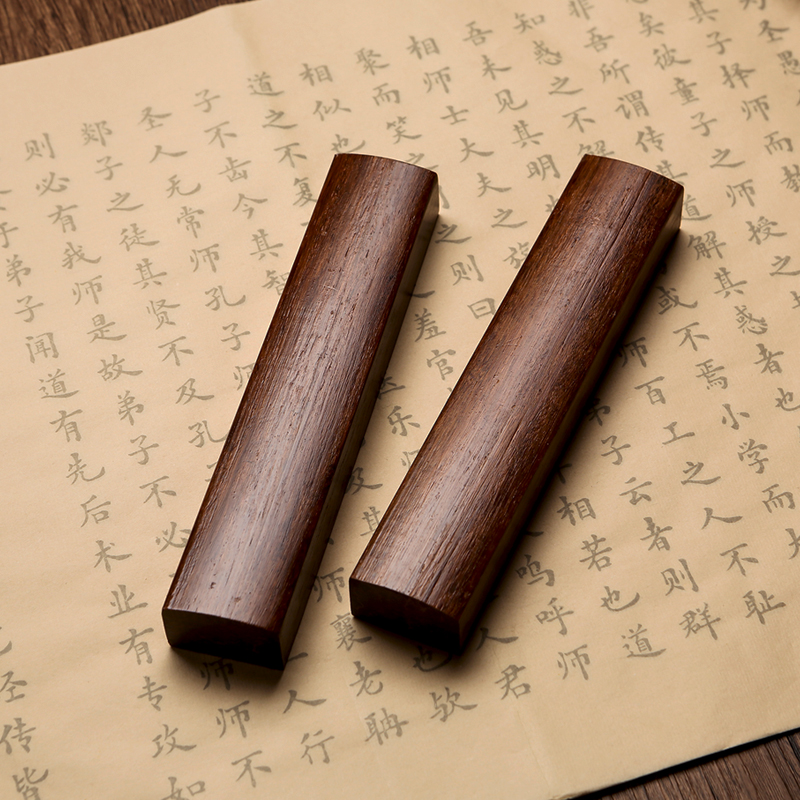 圣愚
其子择师而教
矣彼童子之师授之
非吾所谓传其道解其惑者也
知惑之不解或不焉小学而大
吾未见其明也师百工之人不耻
相师士大夫之族弟子云者则群
聚而笑之之则曰相若也道
相似也羞官呜呼师
道之不复乐人君
子不齿今其智及其也欤
圣人无常师孔子师襄老聃
郯子之徒其贤不及孔人行
则必有我师是故弟子不必师师不
于弟子闻道有先后术业有专攻如
圣传皆